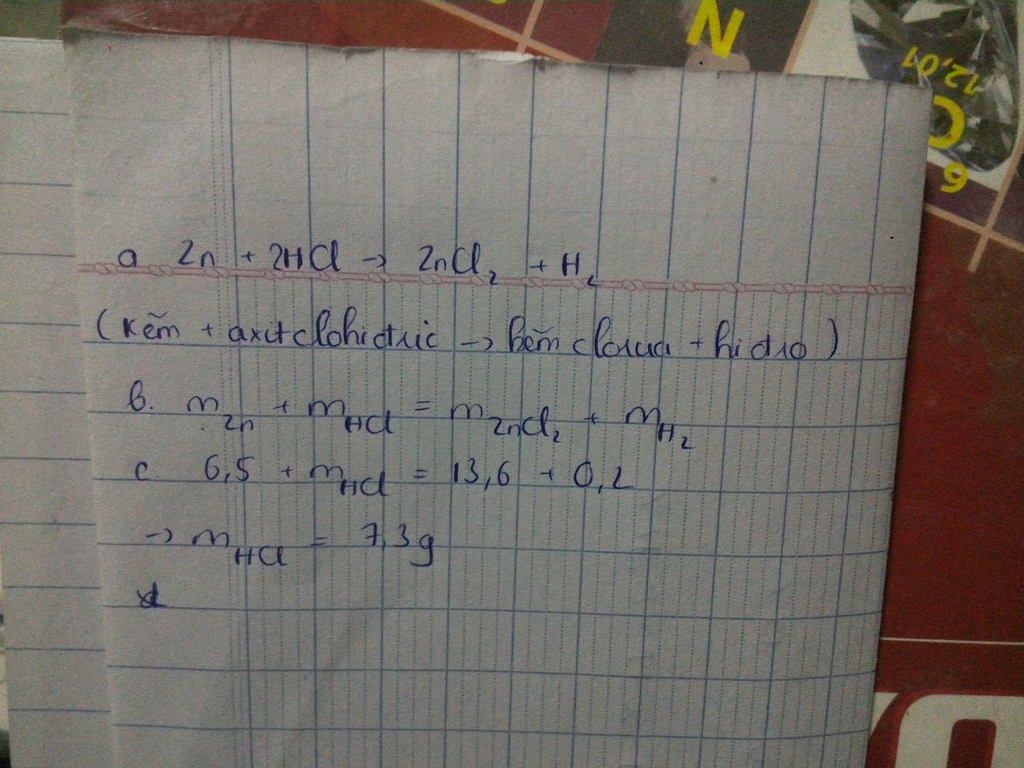 N
12,01
C
6
a Zn + 2HCl → ZnCl₂ + H₂
(kẽm + axit clohidric → kẽm clorua + hidro)
b. m_Zn + m_HCl = m_ZnCl₂ + m_H₂
c. 6,5 + m_HCl = 13,6 + 0,2
→ m_HCl = 7,3g